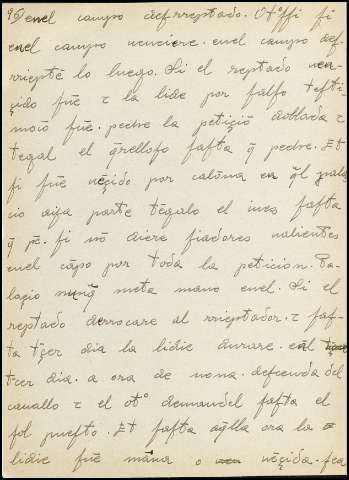 95) enel campo deſrreptado. Ot°ſſi ſi
enel campo venciere. enel campo deſ-
rriepte lo luego. Si el reptado ven-
çido fue τ la lide por falſo teſti-
monio fue. peche la petiçiõ doblada τ
tẽgal el q̃relloſo faſta q̃ peche. Et
ſi fue vẽçido por calõna en q̃l pala-
cio aya parte tẽgalo el iuez faſta
q̃ pc̃. ſi nõ diere fiadores valientes
enel cãpo por toda la peticion. Pa-
laçio nũq̃ meta mano enel. Si el
reptado derrocare al rrieptador. τ faſ-
ta tc̃er dia la lidie durare. enl
tcer dia. a ora de nona. deſcenda del
cauallo τ el ot° demandel faſta el
ſol pueſto. Et faſta aq̃lla ora la
lidie fue mãna o vẽçida. ſea